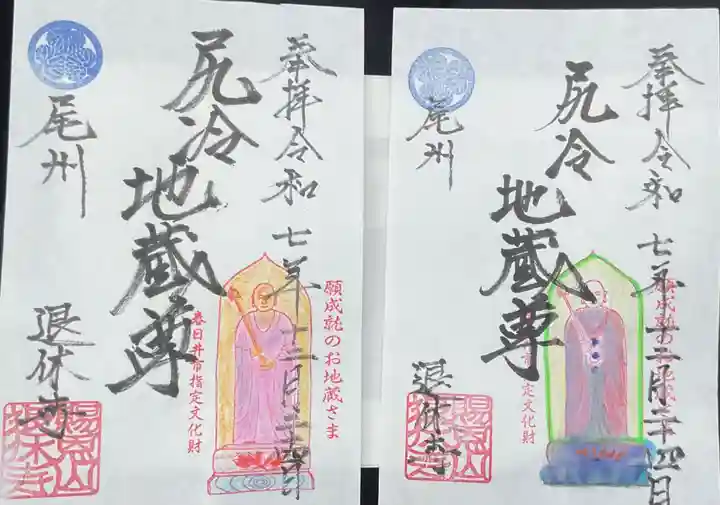 奉拝令和七年十二月二十四日
尻冷地蔵尊
尾州
退休寺
願成就のお地蔵さま
春日井市指定文化財
奉拝令和七年十二月二十四日
尻冷地蔵尊
尾州
退休寺
指定文化財